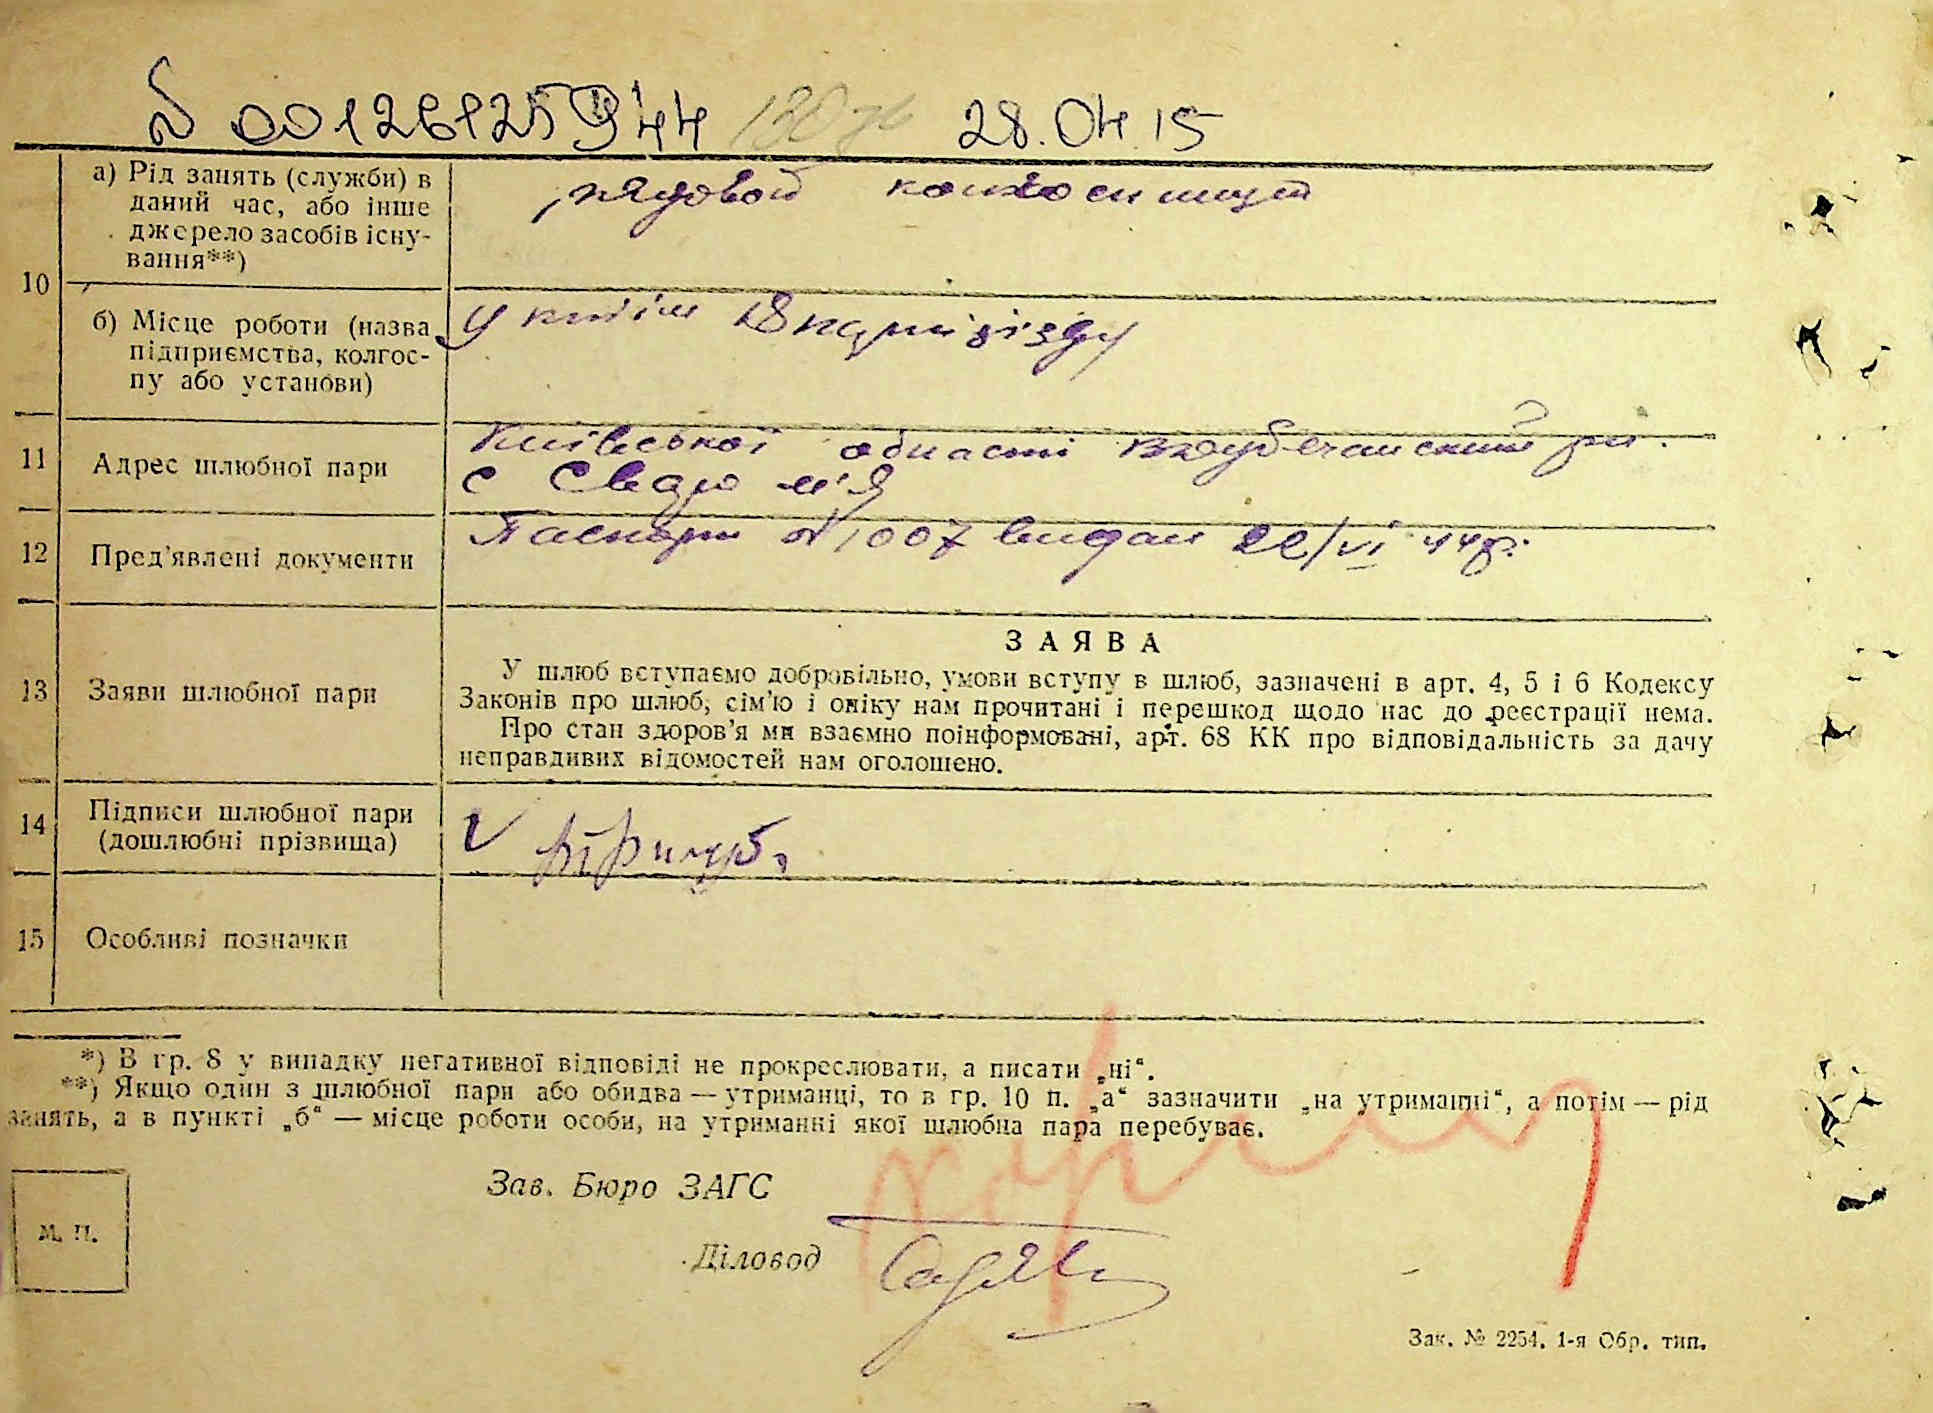 00126125944 28.04.15
а) Рід занять (служби) в
даний час, або інше
джерело засобів існу-
вання**)
рядовой
10
б) Місце роботи (назва
підприємства, колгос-
пу або установи)
У
11
Адрес шлюбної пари
Київської області район
с
12
Пред'явлені документи
Паспорт № 1007 видан 22/VI 44р.
13
Заяви шлюбної пари
ЗАЯВА
У шлюб вступаємо добровільно, умови вступу в шлюб, зазначені в арт. 4, 5 і 6 Кодексу
Законів про шлюб, сім'ю і опіку нам прочитані і перешкод щодо нас до реєстрації нема.
Про стан здоров'я ми взаємно поінформовані, арт. 68 КК про відповідальність за дачу
неправдивих відомостей нам оголошено.
14
Підписи шлюбної пари
(дошлюбні прізвища)
15
Особливі позначки
*) В гр. 8 у випадку негативної відповіді не прокреслювати, а писати „ні“.
**) Якщо один з шлюбної пари або обидва — утриманці, то в гр. 10 п. „а“ зазначити „на утриманні“, а потім — рід
занять, а в пункті „б“ — місце роботи особи, на утриманні якої шлюбна пара перебуває.
Зав. Бюро ЗАГС
М. П.
Діловод
Зак. № 2254. 1-я Обр. тип.